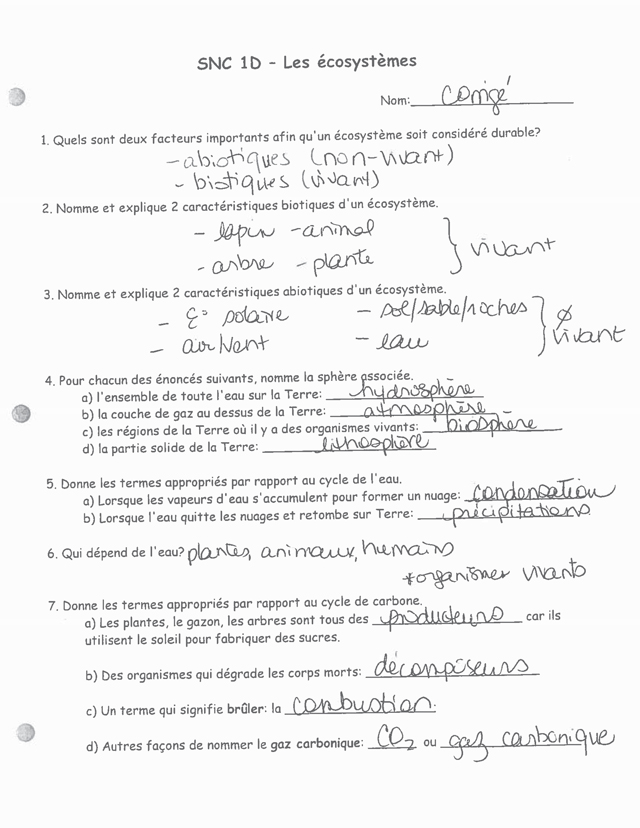 SNC 1D - Les écosystèmes
Nom: Corrigé
1. Quels sont deux facteurs importants afin qu'un écosystème soit considéré durable?
- abiotiques (non-vivant)
- biotiques (vivant)
2. Nomme et explique 2 caractéristiques biotiques d'un écosystème.
- lapin - animal
- arbre - plante
} vivant
3. Nomme et explique 2 caractéristiques abiotiques d'un écosystème.
- É° solaire - sol/sable/roches
- air/vent - eau
} ∅ vivant
4. Pour chacun des énoncés suivants, nomme la sphère associée.
a) l'ensemble de toute l'eau sur la Terre: hydrosphère
b) la couche de gaz au dessus de la Terre: atmosphère
c) les régions de la Terre où il y a des organismes vivants: biosphère
d) la partie solide de la Terre: lithosphère
5. Donne les termes appropriés par rapport au cycle de l'eau.
a) Lorsque les vapeurs d'eau s'accumulent pour former un nuage: condensation
b) Lorsque l'eau quitte les nuages et retombe sur Terre: précipitations
6. Qui dépend de l'eau? plantes, animaux, humains
*organismes vivants
7. Donne les termes appropriés par rapport au cycle de carbone.
a) Les plantes, le gazon, les arbres sont tous des producteurs car ils
utilisent le soleil pour fabriquer des sucres.
b) Des organismes qui dégrade les corps morts: décomposeurs
c) Un terme qui signifie brûler: la combustion.
d) Autres façons de nommer le gaz carbonique: CO₂ ou gaz carbonique